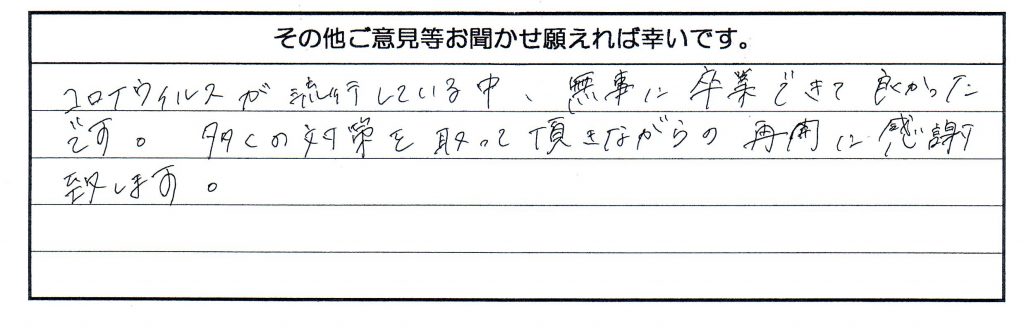 その他ご意見等お聞かせ願えれば幸いです。
コロナウィルスが流行している中、無事に卒業できて良かった
です。多くの対策を取って頂きながらの再開に感謝
致します。